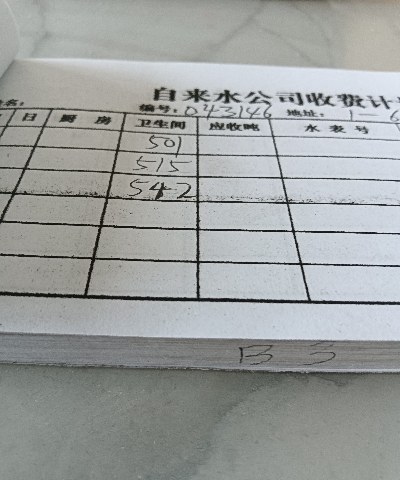 自来水公司收费计
名: 编号: 043146 地址: 1-6
日 厨房 卫生间 应收吨 水表号
501
515
542
B 3